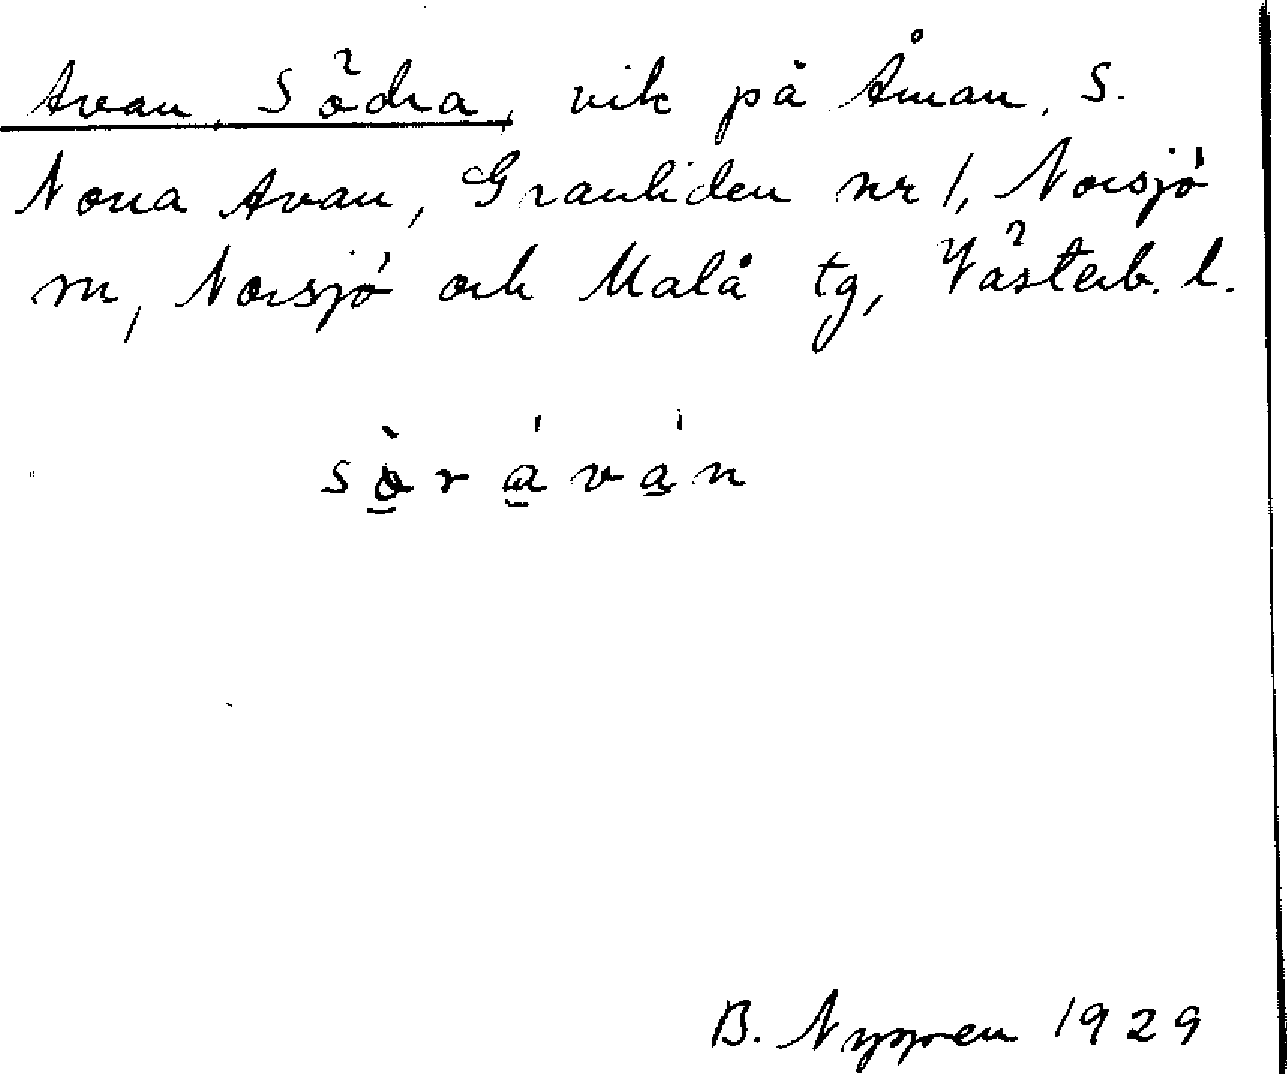 Avan, Södra, vik på Åman, S.
Norra Avan, Granliden nr 1, Norsjö
sn, Norsjö och Malå tg, Västerb. l.
sò̱rá̱vá̱n
B. Nygren 1929